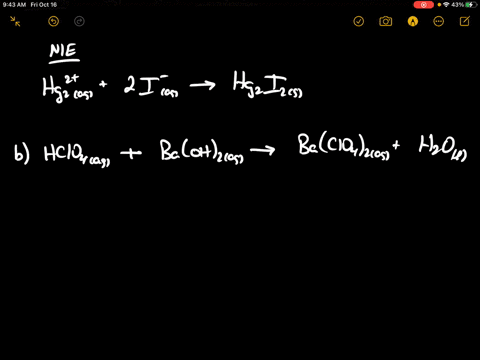 9:43 AM Fri Oct 16 43%
NIE
Hg₂²⁺(aq) + 2I⁻(aq) → Hg₂I₂(s)
b) HClO₄(aq) + Ba(OH)₂(aq) → Ba(ClO₄)₂(aq) + H₂O(l)